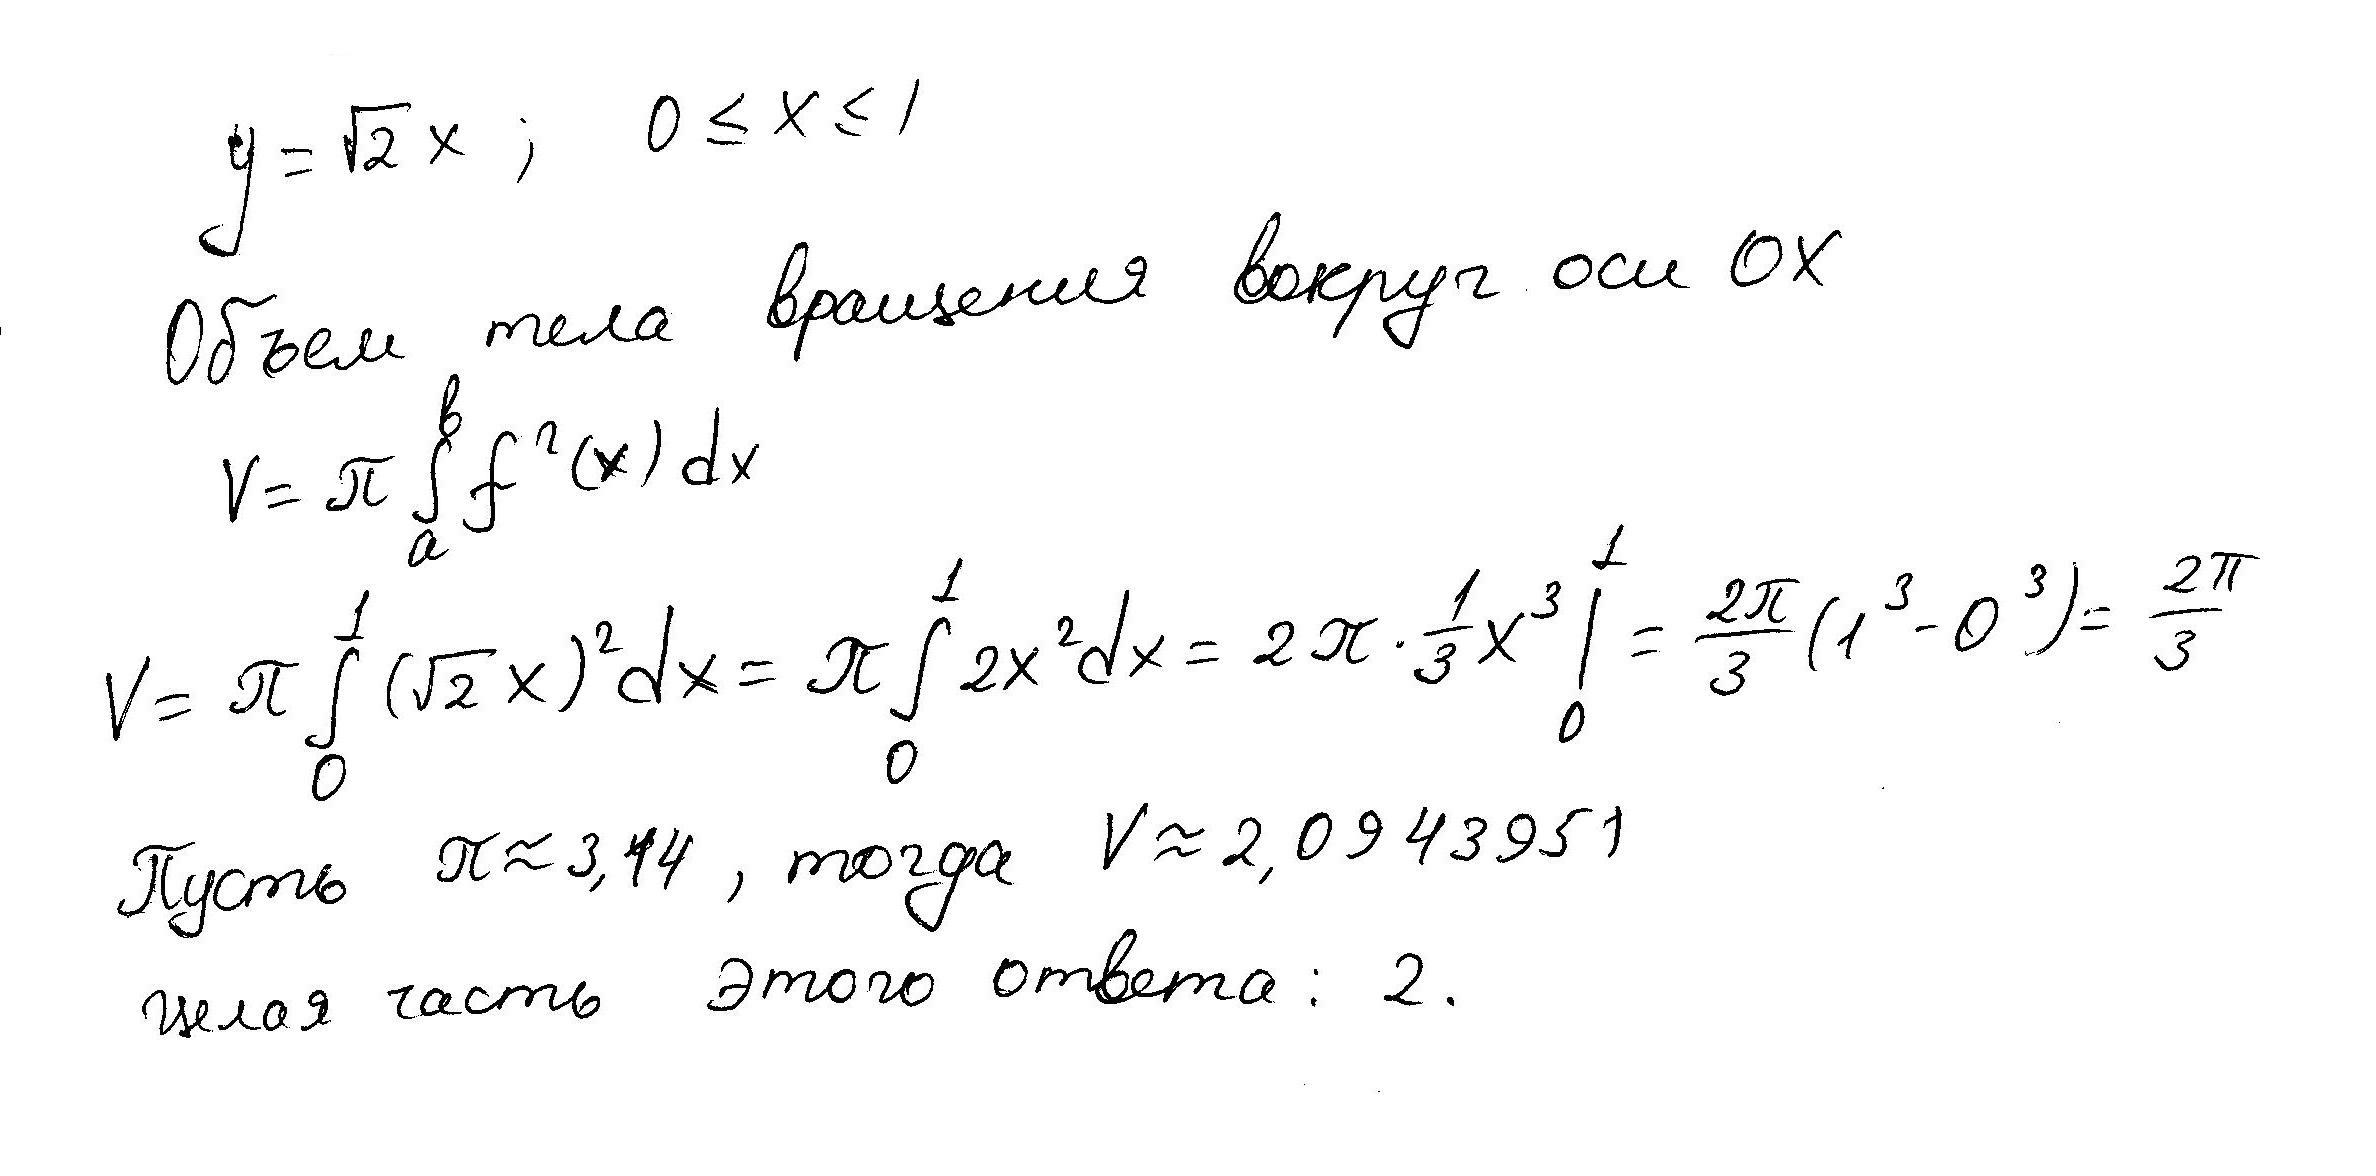 y = √2 x ; 0 ≤ x ≤ 1
Объем тела вращения вокруг оси OX
V = π ∫ₐᵇ f²(x) dx
V = π ∫₀¹ (√2 x)² dx = π ∫₀¹ 2x² dx = 2π · 1/3 x³ |₀¹ = 2π/3 (1³ - 0³) = 2π/3
Пусть π ≈ 3,14 , тогда V ≈ 2,0943951
целая часть этого ответа : 2.